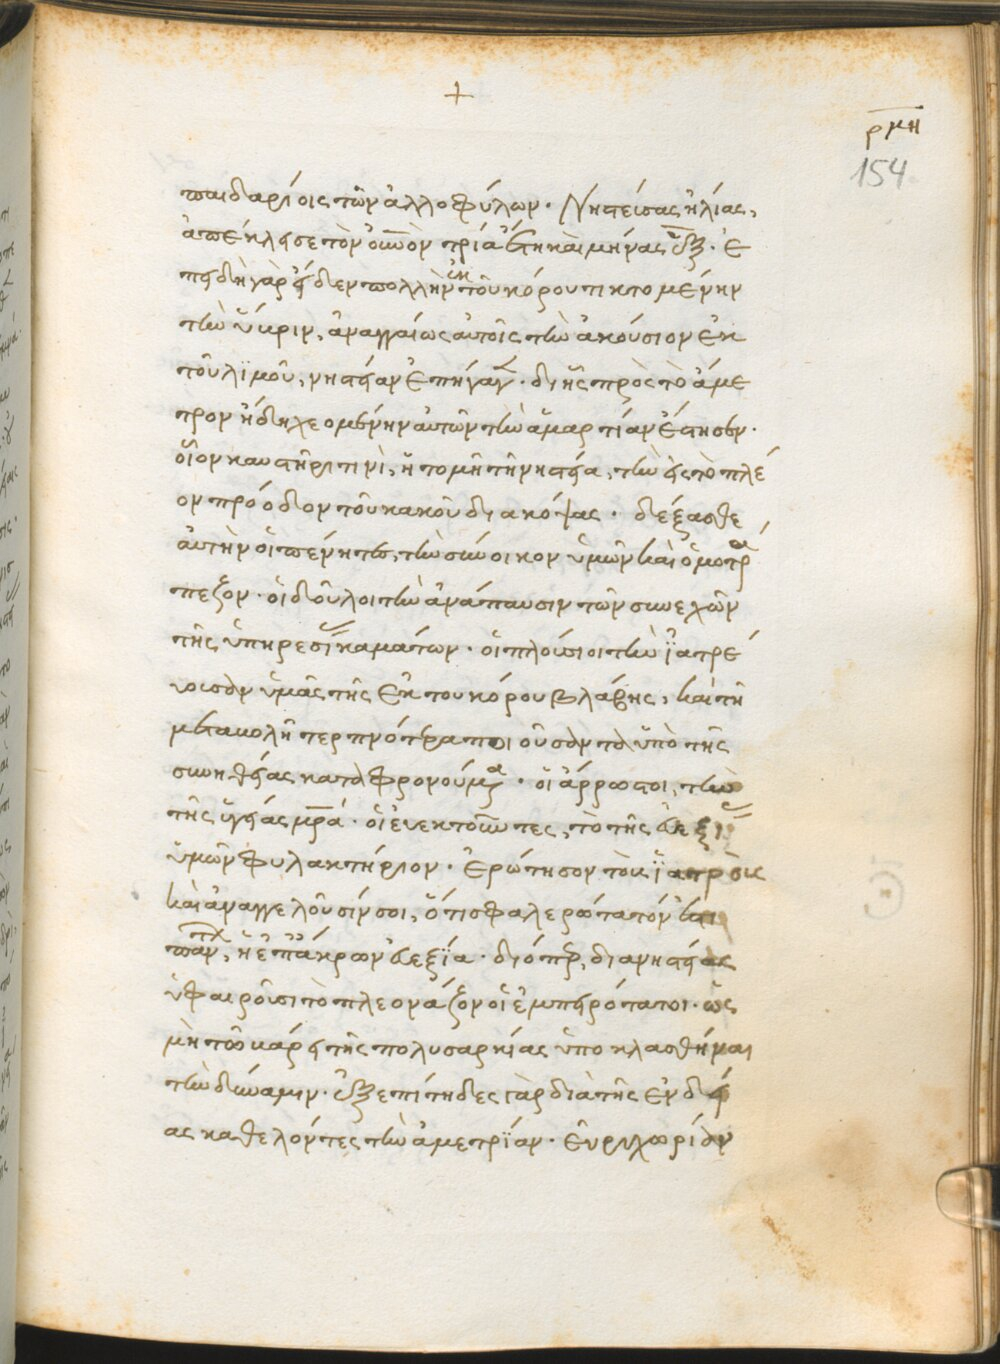 +
ρμη
154
παιδαρίοις τῶν ἀλλοφύλων. Νηστεύσας ἠλίας,
ἀπέκλεισε τὸν οὐνὸν τρία ἔτη καὶ μῆνας ἕξ. ἐ
πειδὴ γὰρ εἶδεν πολλὴν ἐκ τοῦ κόρου τικτομένην
τὴν ὕβριν, ἀναγκαίως αὐτοῖς τὴν ἀκούσιον ἐκ
τοῦ λιμοῦ, νηστείαν ἐπήγαγ. δι ἧς πρὸς τὸ ἄμε
τρον ἤδη χεομένην αὐτῶν τὴν ἁμαρτίαν ἔστησεν.
οἷον καυτῆρι τινὶ, ἢ τομῇ τῇ νηστεία, τὴν εἰς τὸ πλέ
ον πρόοδον τοῦ κακοῦ διακόψας. δέξασθε
αὐτὴν οἱ πένητες, τὴν σύνοικον ὑμῶν καὶ ὁμοτρά
πεζον. οἱ δοῦλοι τὴν ἀνάπαυσιν τῶν συνεχῶν
τῆς ὑπηρεσίας καμάτων. οἱ πλούσιοι τὴν ἰατρεύ
ουσαν ὑμᾶς τῆς ἐκ του κόρου βλάβης, καὶ τῆ
μεταβολῆ τερπνότερα ποιοῦσαν τὰ ὑπὸ τῆς
συνηθείας καταφρονούμενα. οἱ ἄρρωστοι, τὴν
τῆς ὑγείας μρά. οἱ εὐεκτοῦντες, τὸ τῆς εὐεξίας
ὑμῶν φυλακτήριον. Ἐρώτησον τοὺς ἰατροὺς
καὶ ἀναγγελοῦσίν σοι, ὅτι σφαλερώτατον καὶ
πάντων, ἡ ἐπ ἄκρων εὐεξία. διόπερ, δια νηστείας
ὑφαιροῦσι τὸ πλεονάζον οἱ ἐμπειρότατοι. ὡς
μὴ τῶ βάρει τῆς πολυσαρκίας ὑποκλασθῆναι
τὴν δύναμιν. ἐξεπίτηδες γὰρ διὰ τῆς ἐνδεί
ας καθελόντες τὴν ἀμετρίαν. εὐρυχωρίαν